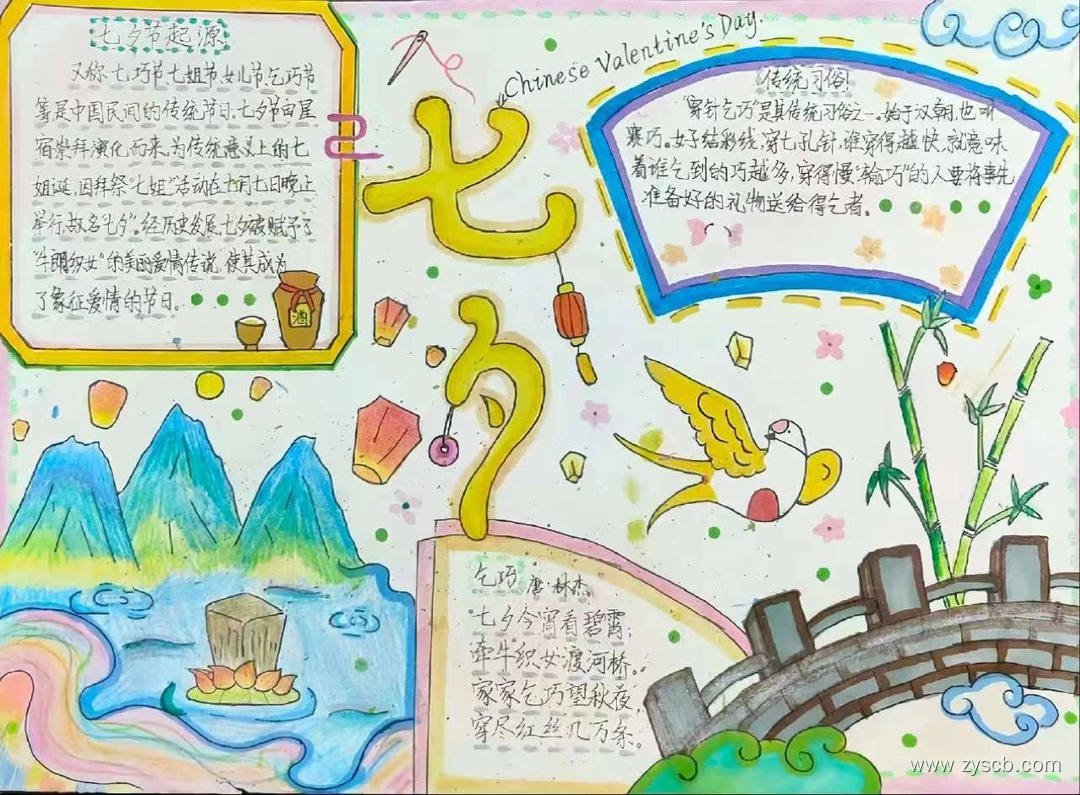 七夕节起源
又称七巧节七姐节女儿节乞巧节
等是中国民间的传统节日。七夕节由星
宿崇拜演化而来,为传统意义上的七
姐诞,因拜祭“七姐”活动在七月七日晚上
举行,故名“七夕”。经历史发展,七夕被赋予了
“牛郎织女”的美丽爱情传说,使其成为
了象征爱情的节日。
酒
Chinese Valentine's Day.
七夕
传统习俗!
“穿针乞巧”是其传统习俗之一。始于汉朝,也叫
赛巧。女子结彩线,穿七孔针,谁穿得越快,就意味
着谁乞到的巧越多,穿得慢“输巧”的人要将事先
准备好的礼物送给得乞者。
乞巧 唐·林杰。
七夕今宵看碧霄;
牵牛织女渡河桥。
家家乞巧望秋夜,
穿尽红丝几万条。
www.zyscb.com